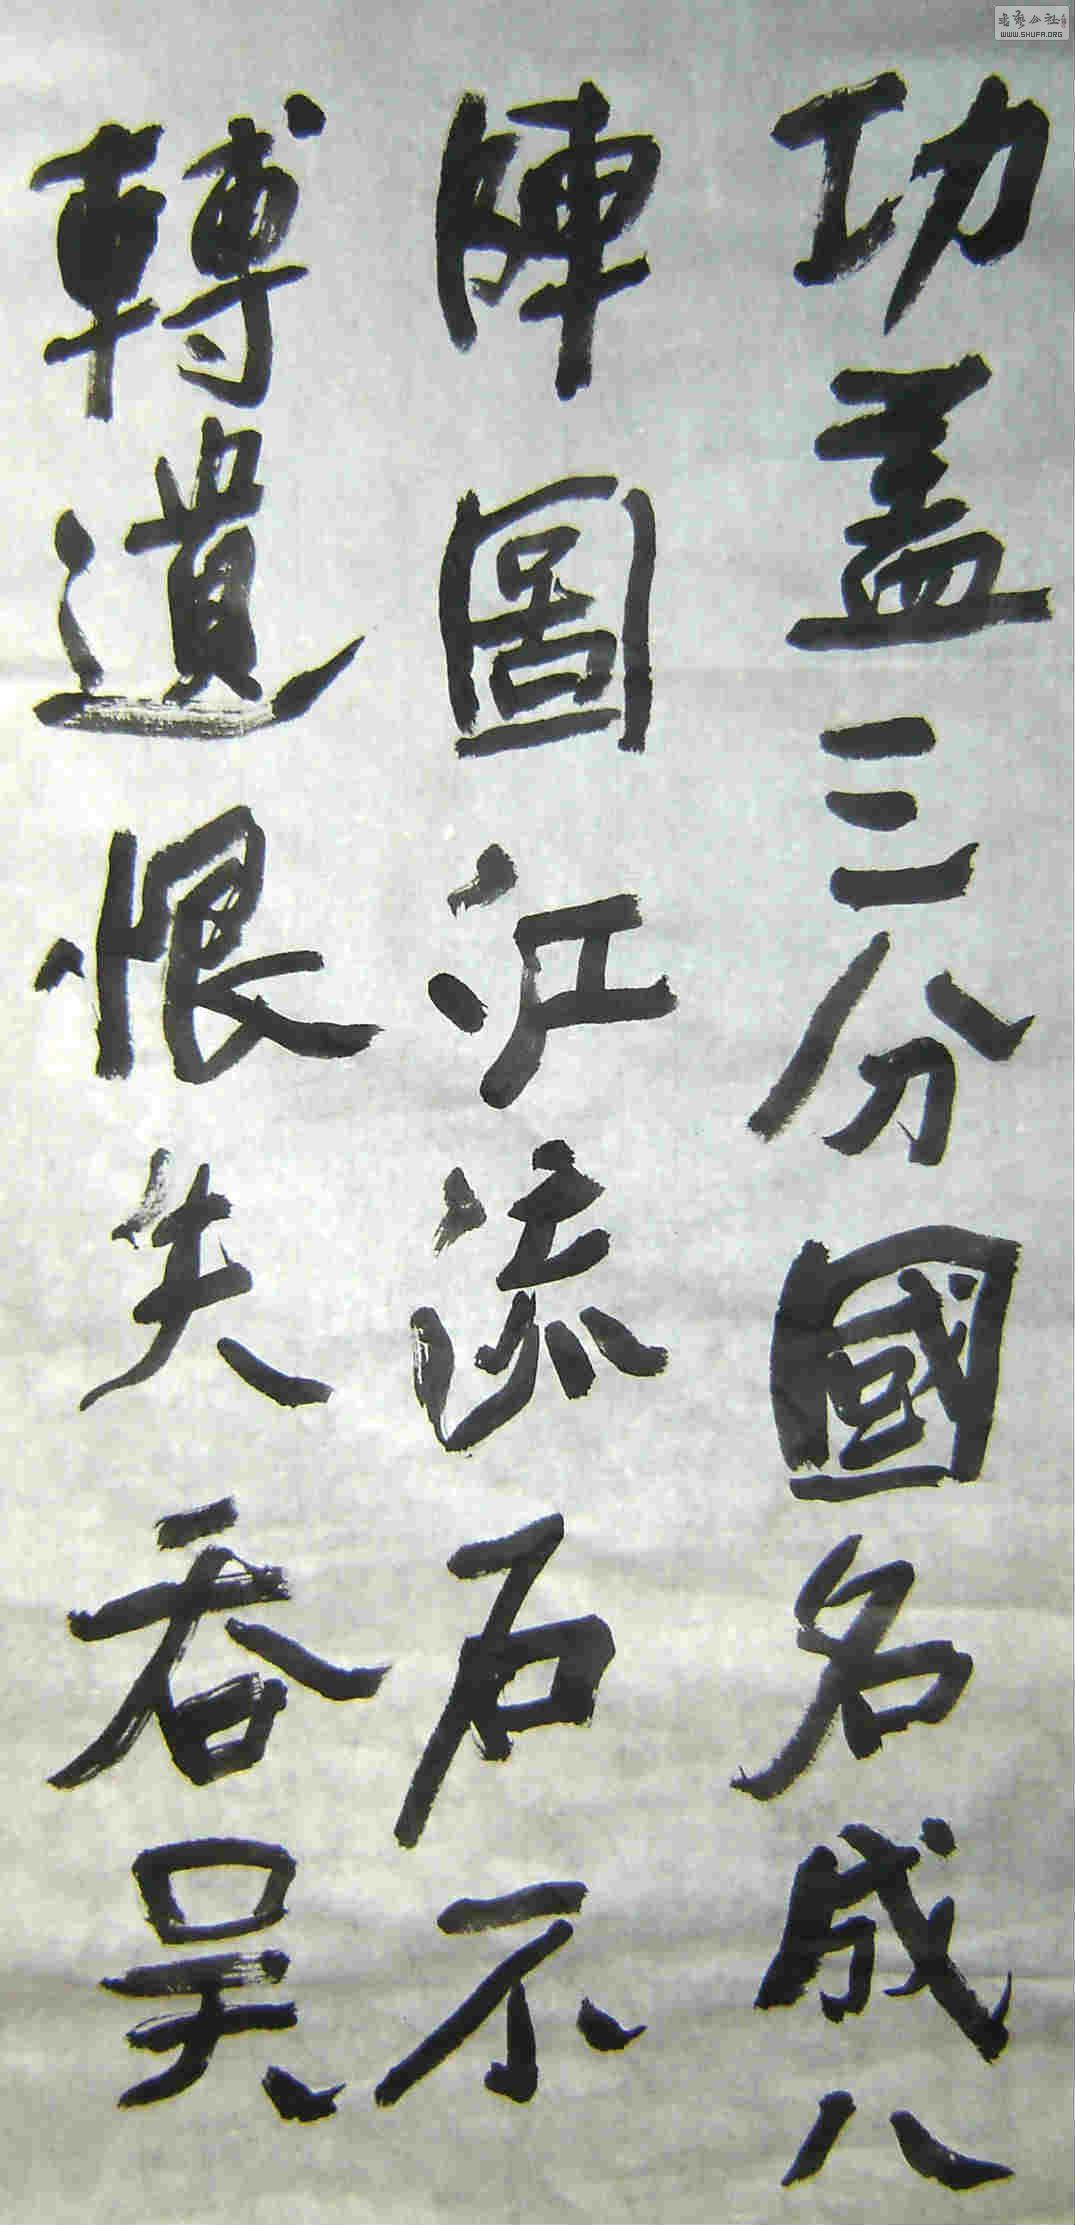 功盖三分國名成八
陣圖江流石不
轉遺恨失吞吴
WWW.SHUFA.ORG